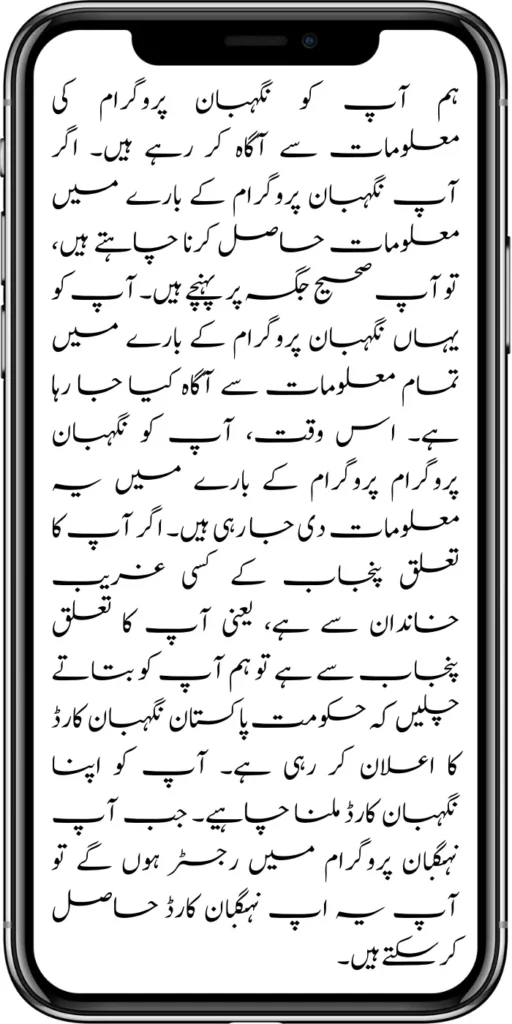 ہم آپ کو نگہبان پروگرام کی
معلومات سے آگاہ کر رہے ہیں۔ اگر
آپ نگہبان پروگرام کے بارے میں
معلومات حاصل کرنا چاہتے ہیں،
تو آپ صحیح جگہ پر پہنچے ہیں۔ آپ کو
یہاں نگہبان پروگرام کے بارے میں
تمام معلومات سے آگاہ کیا جا رہا
ہے۔ اس وقت، آپ کو نگہبان
پروگرام پروگرام کے بارے میں یہ
معلومات دی جا رہی ہیں۔ اگر آپ کا
تعلق پنجاب کے کسی غریب
خاندان سے ہے، یعنی آپ کا تعلق
پنجاب سے ہے تو ہم آپ کو بتاتے
چلیں کہ حکومت پاکستان نگہبان کارڈ
کا اعلان کر رہی ہے۔ آپ کو اپنا
نگہبان کارڈ ملنا چاہیے۔ جب آپ
نہگبان پروگرام میں رجسٹر ہوں گے تو
آپ یہ اپ نہگبان کارڈ حاصل
کر سکتے ہیں۔